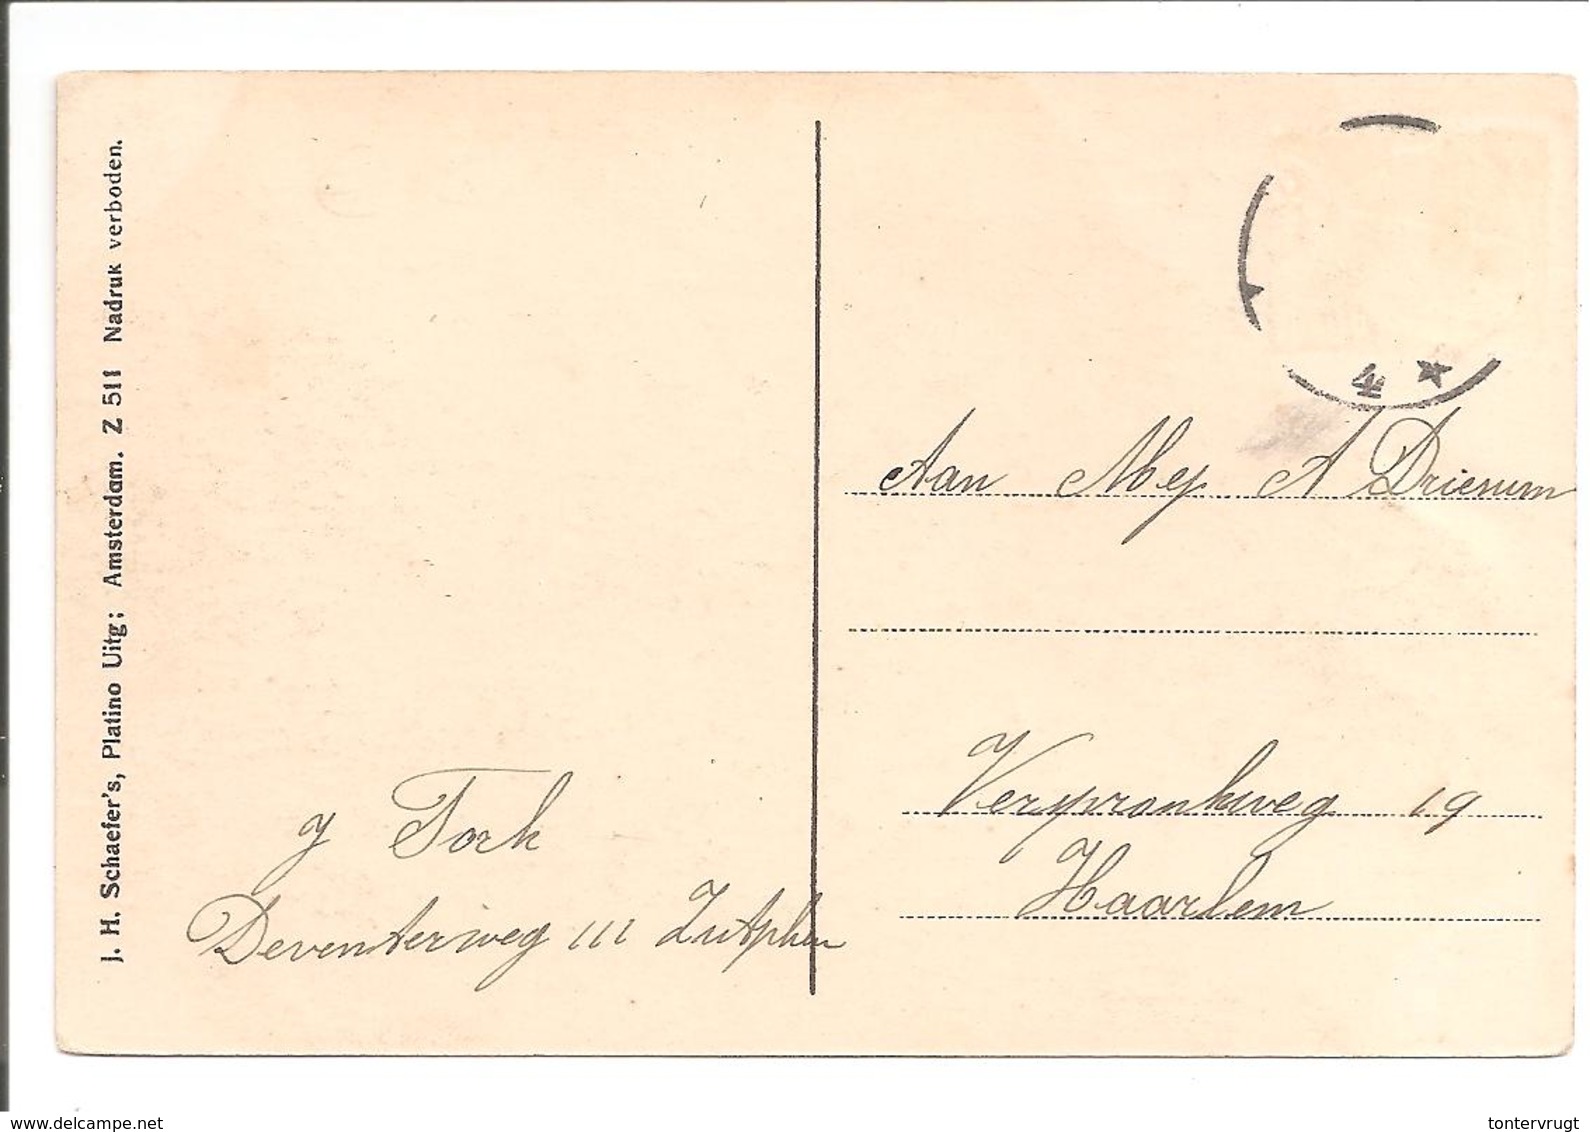 J. H. Schaefer's, Platino Uitg; Amsterdam. Z 511 Nadruk verboden.
4
Aan Mej A Drienum
J Tork
Deventerweg 111 Zutphen
Verspronkweg 19
Haarlem
www.delcampe.net
tontervrugt